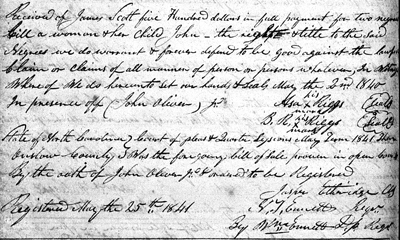 Received of James Scott five Hundred dollars in full payment for two negroes
Bill a woman & her Child John – the right & title to the said
Negroes we do warrant & forever defend to be good against the lawful
Claim or Claims of all manner of person or persons whatever, In witness
Whereof We do hereunto set our hands & Seals May the 2nd 1840
In presence off (John Oliver)
his
Riggs (Seal)
mark
his
B. R. Riggs (Seal)
mark
State of North Carolina Court of pleas & Quarter Sessions May Term 1841
Onslow County } Was the foregoing bill of Sale proven in open Court
By the oath of John Oliver & to be Registered
Jasper Etheridge Clk
Registered May the 25th 1841
Regr
By